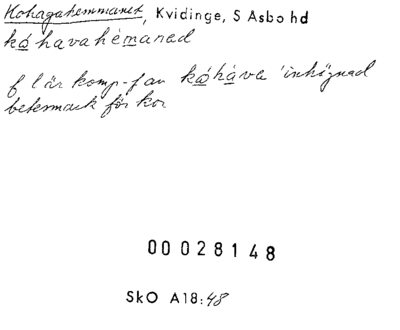 Kohagahemmanet, Kvidinge, S Asbo hd
kóhavahèmaned
f l är komp-f av kóhàva 'inhägnad
betesmark för kor
00028148
SkO A18:48